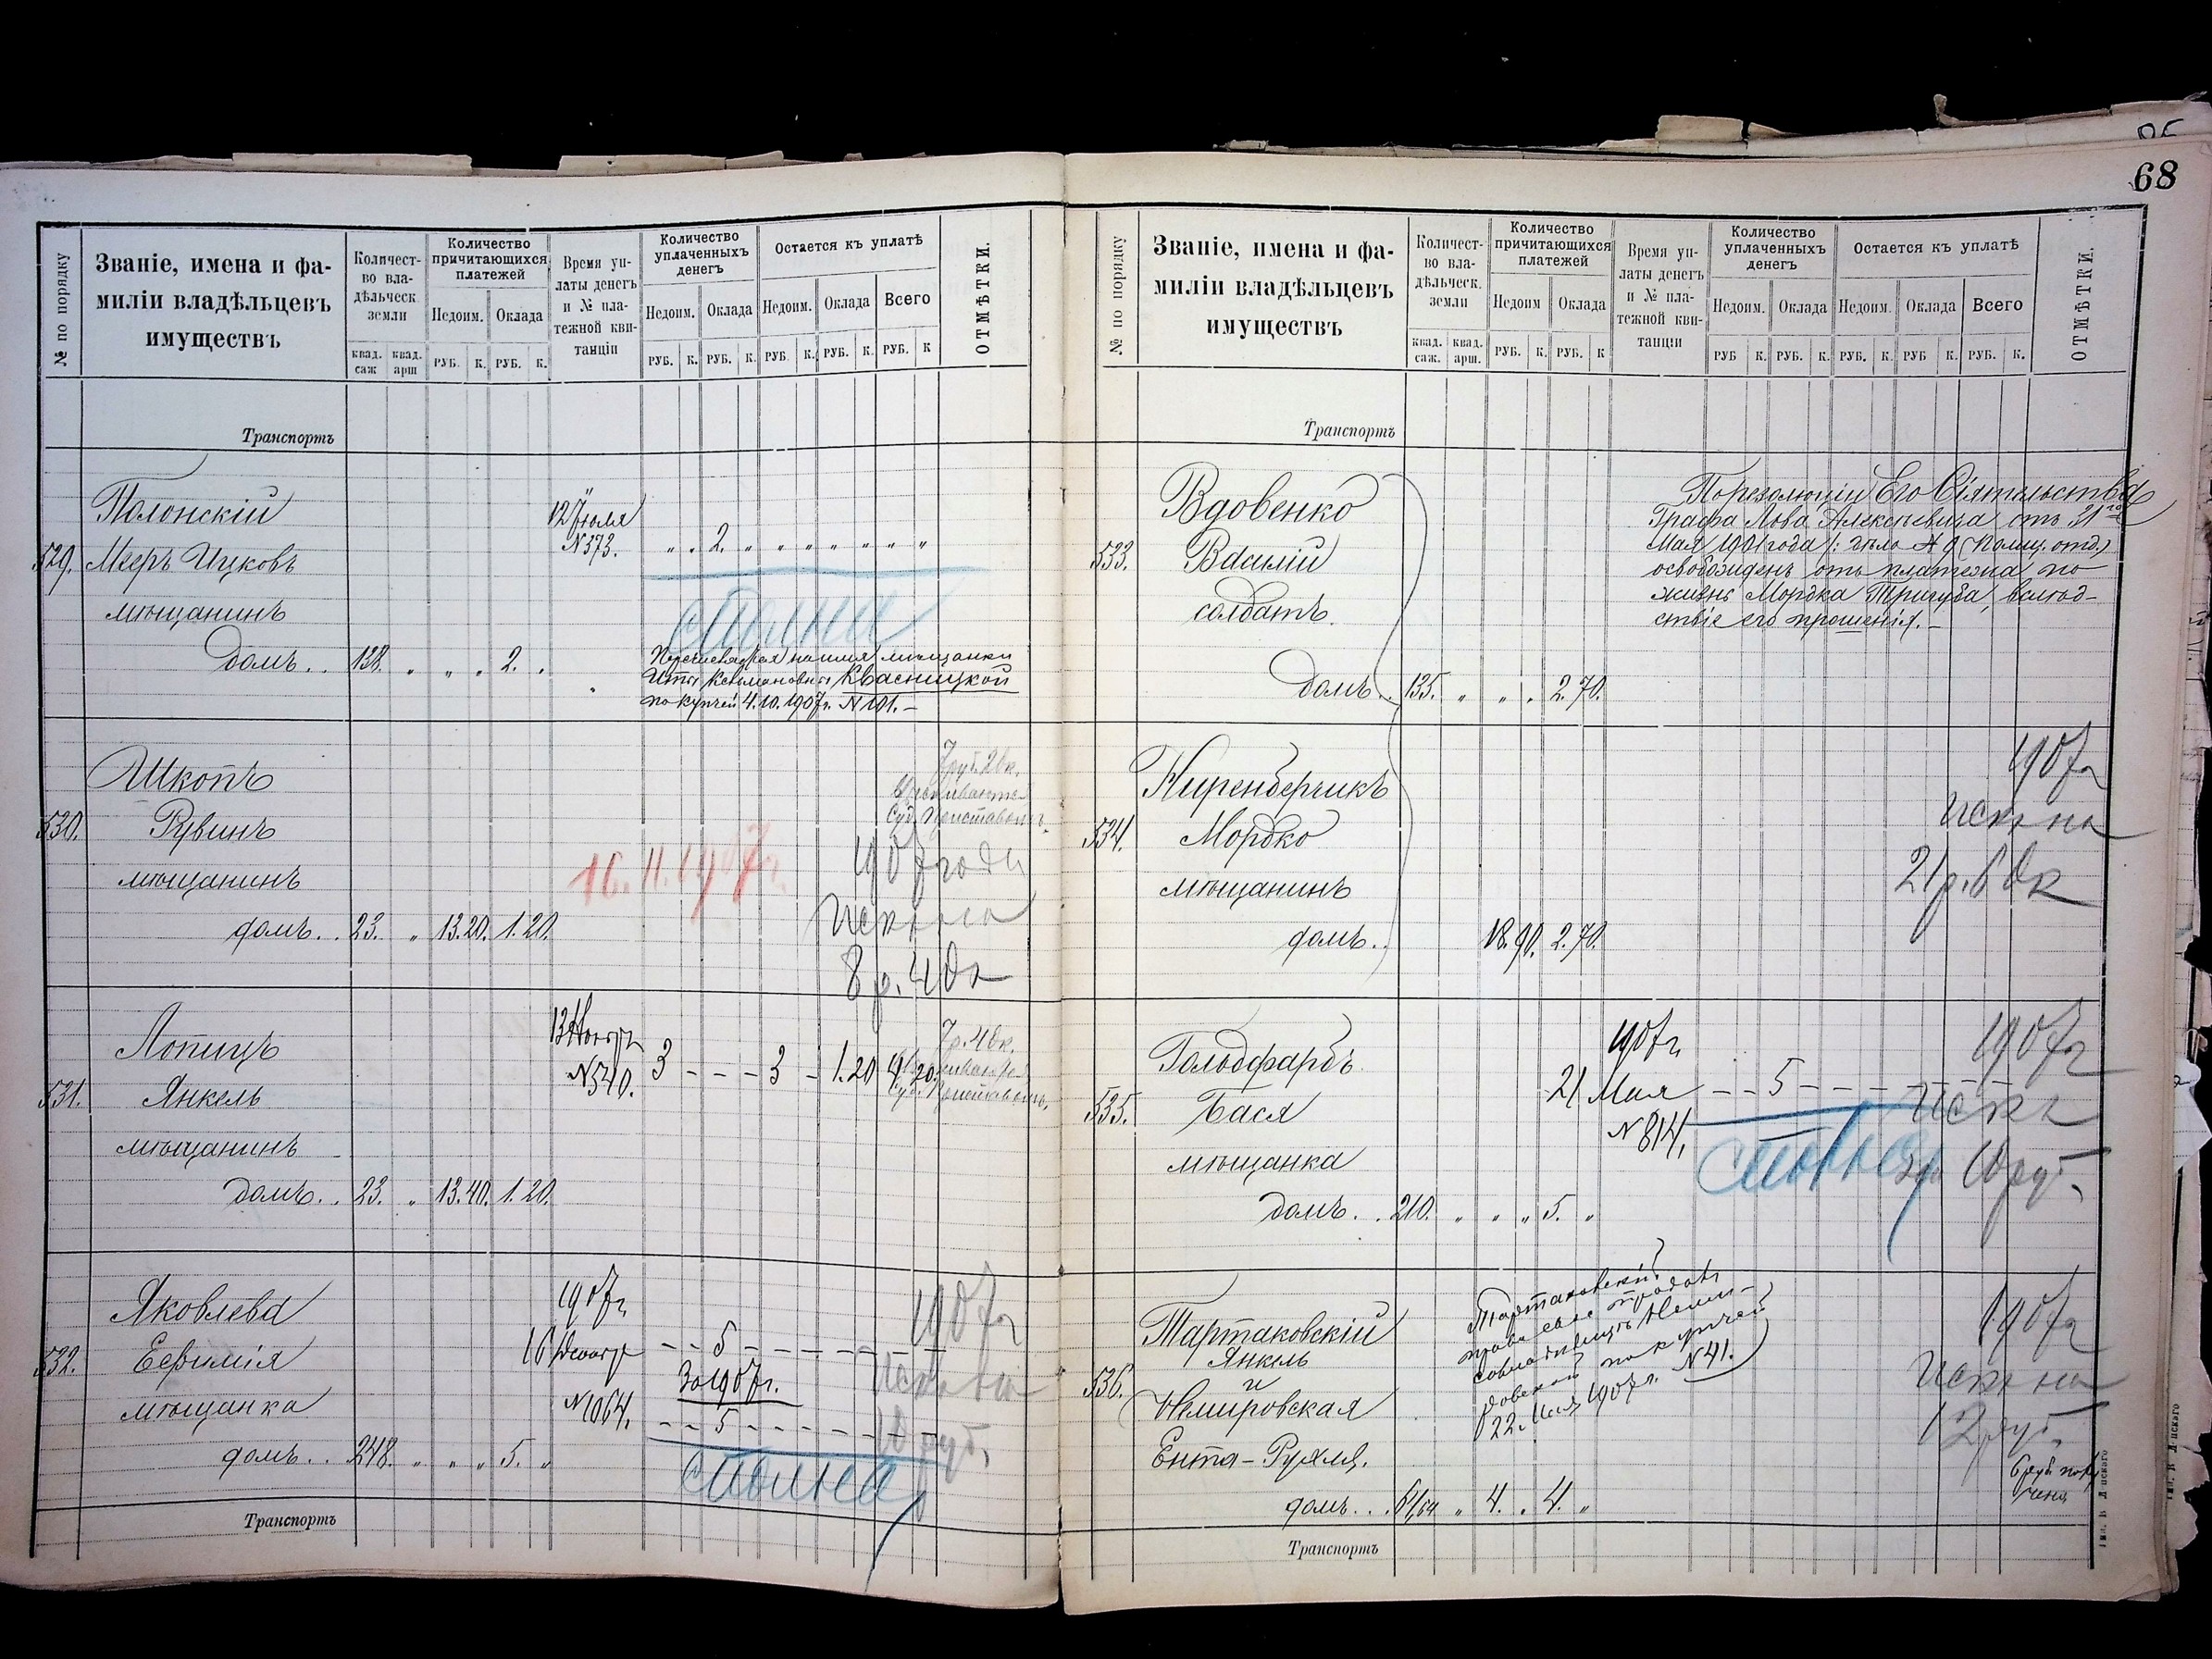 68
№ по порядку
Званіе, имена и фа-
миліи владѣльцевъ
имуществъ
Количест-
во вла-
дѣльческ.
земли
квад. саж
квад. арш
Количество
причитающихся
платежей
Недоим. Оклада
РУБ. К. РУБ. К.
Время уп-
латы денегъ
и № пла-
тежной кви-
танціи
Количество
уплаченныхъ
денегъ
Недоим. Оклада
РУБ. К. РУБ. К.
Остается къ уплатѣ
Недоим. Оклада Всего
РУБ К. РУБ. К. РУБ. К
ОТМѢТКИ.
Транспортъ
529.
Полонскій
Мееръ Ицковъ
мѣщанинъ
домъ.. 138. „ „ „ 2. „
12 Іюля
№ 373.
„ „ 2. „ „ „ „ „ „ „
сполна
мѣщанки
Квасницкой
по купчей 4.10.1907г. № 101.–
530.
Шкопъ
Рувинъ
мѣщанинъ
домъ.. 23. „ 13.20. 1.20.
16.II.1907г.
Суд. Приставомъ.
1907 года
8 р. 40к
531.
Лопицъ
Янкель
мѣщанинъ
домъ.. 23. „ 13.40. 1.20.
№ 540.
3 - - - 3 - 1.20 4.20.
532.
Яковлева
Ефимія
мѣщанка
домъ.. 248. „ „ „ 5. „
1907г.
№ 1064.
- - 5 - - - - - - -
За 1907г.
- - 5 - - - - - - -
сполна
1907г
10 руб.
Транспортъ
№ по порядку
Званіе, имена и фа-
миліи владѣльцевъ
имуществъ
Количест-
во вла-
дѣльческ.
земли
квад. саж.
квад. арш.
Количество
причитающихся
платежей
Недоим Оклада
РУБ. К. РУБ. К
Время уп-
латы денегъ
и № пла-
тежной кви-
танціи
Количество
уплаченныхъ
денегъ
Недоим. Оклада
РУБ К. РУБ. К.
Остается къ уплатѣ
Недоим. Оклада Всего
РУБ. К. РУБ К. РУБ. К.
ОТМѢТКИ.
Транспортъ
533.
Вдовенко
Василій
солдатъ.
домъ.. 135. „ „ „ 2.70.
По резолюціи Его Сіятельства
Графа Льва Алексѣевича отъ 31го
Мая 1901 года /: дѣло № 9 (Полиц. отд.)
освобожденъ отъ платежа по
жизнь Мордка Тригуба, вслѣд-
ствіе его прошенія.–
534.
Ниренберчикъ
Мордко
мѣщанинъ
домъ.. 18.90. 2.70.
1907г
21 р. 60к
535.
Гольдфарбъ
Бася
мѣщанка
домъ.. 210. „ „ „ 5. „
1907г.
21 Мая
№ 814.
- - 5 - - - -
1907г
10 руб.
536.
Тартаковскій
Янкель
и
Немировская
Ента-Рухля.
домъ... 64/64 „ 4. „ 4. „
Тартаковскій
право свое продалъ
совладѣлицѣ Неми-
ровской по купчей
22 Мая 1907г. № 41.
1907г
12 руб.
Транспортъ